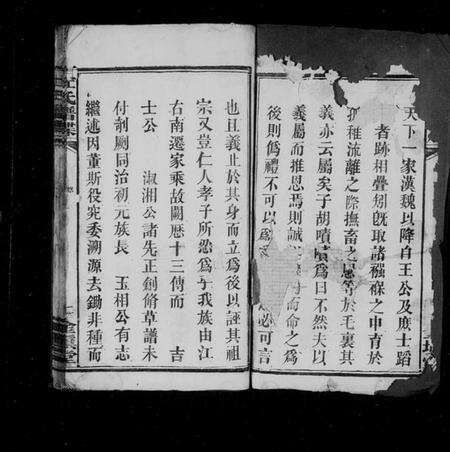 天下一家漢魏以降自王公及庶士蹈
者跡相疊矧既取諸襁褓之中育於
孤稚流離之際撫畜之恩等於毛裏其
義亦云屬矣于胡嘖嘖爲曰不然夫以
義屬而推恩焉則誠 而命之爲
後則僞禮不可以爲 必可言
也且義止於其身而立爲後以誣其祖
宗又豈仁人孝子所忍爲乎我族由江
右南遷家乘故闕歷十三傳而 吉
士公 淑湘公諸先正創脩草譜未
付剞劂同治初元族長 玉相公有志
繼述因董斯役究委溯源去鋤非種而
氏譜